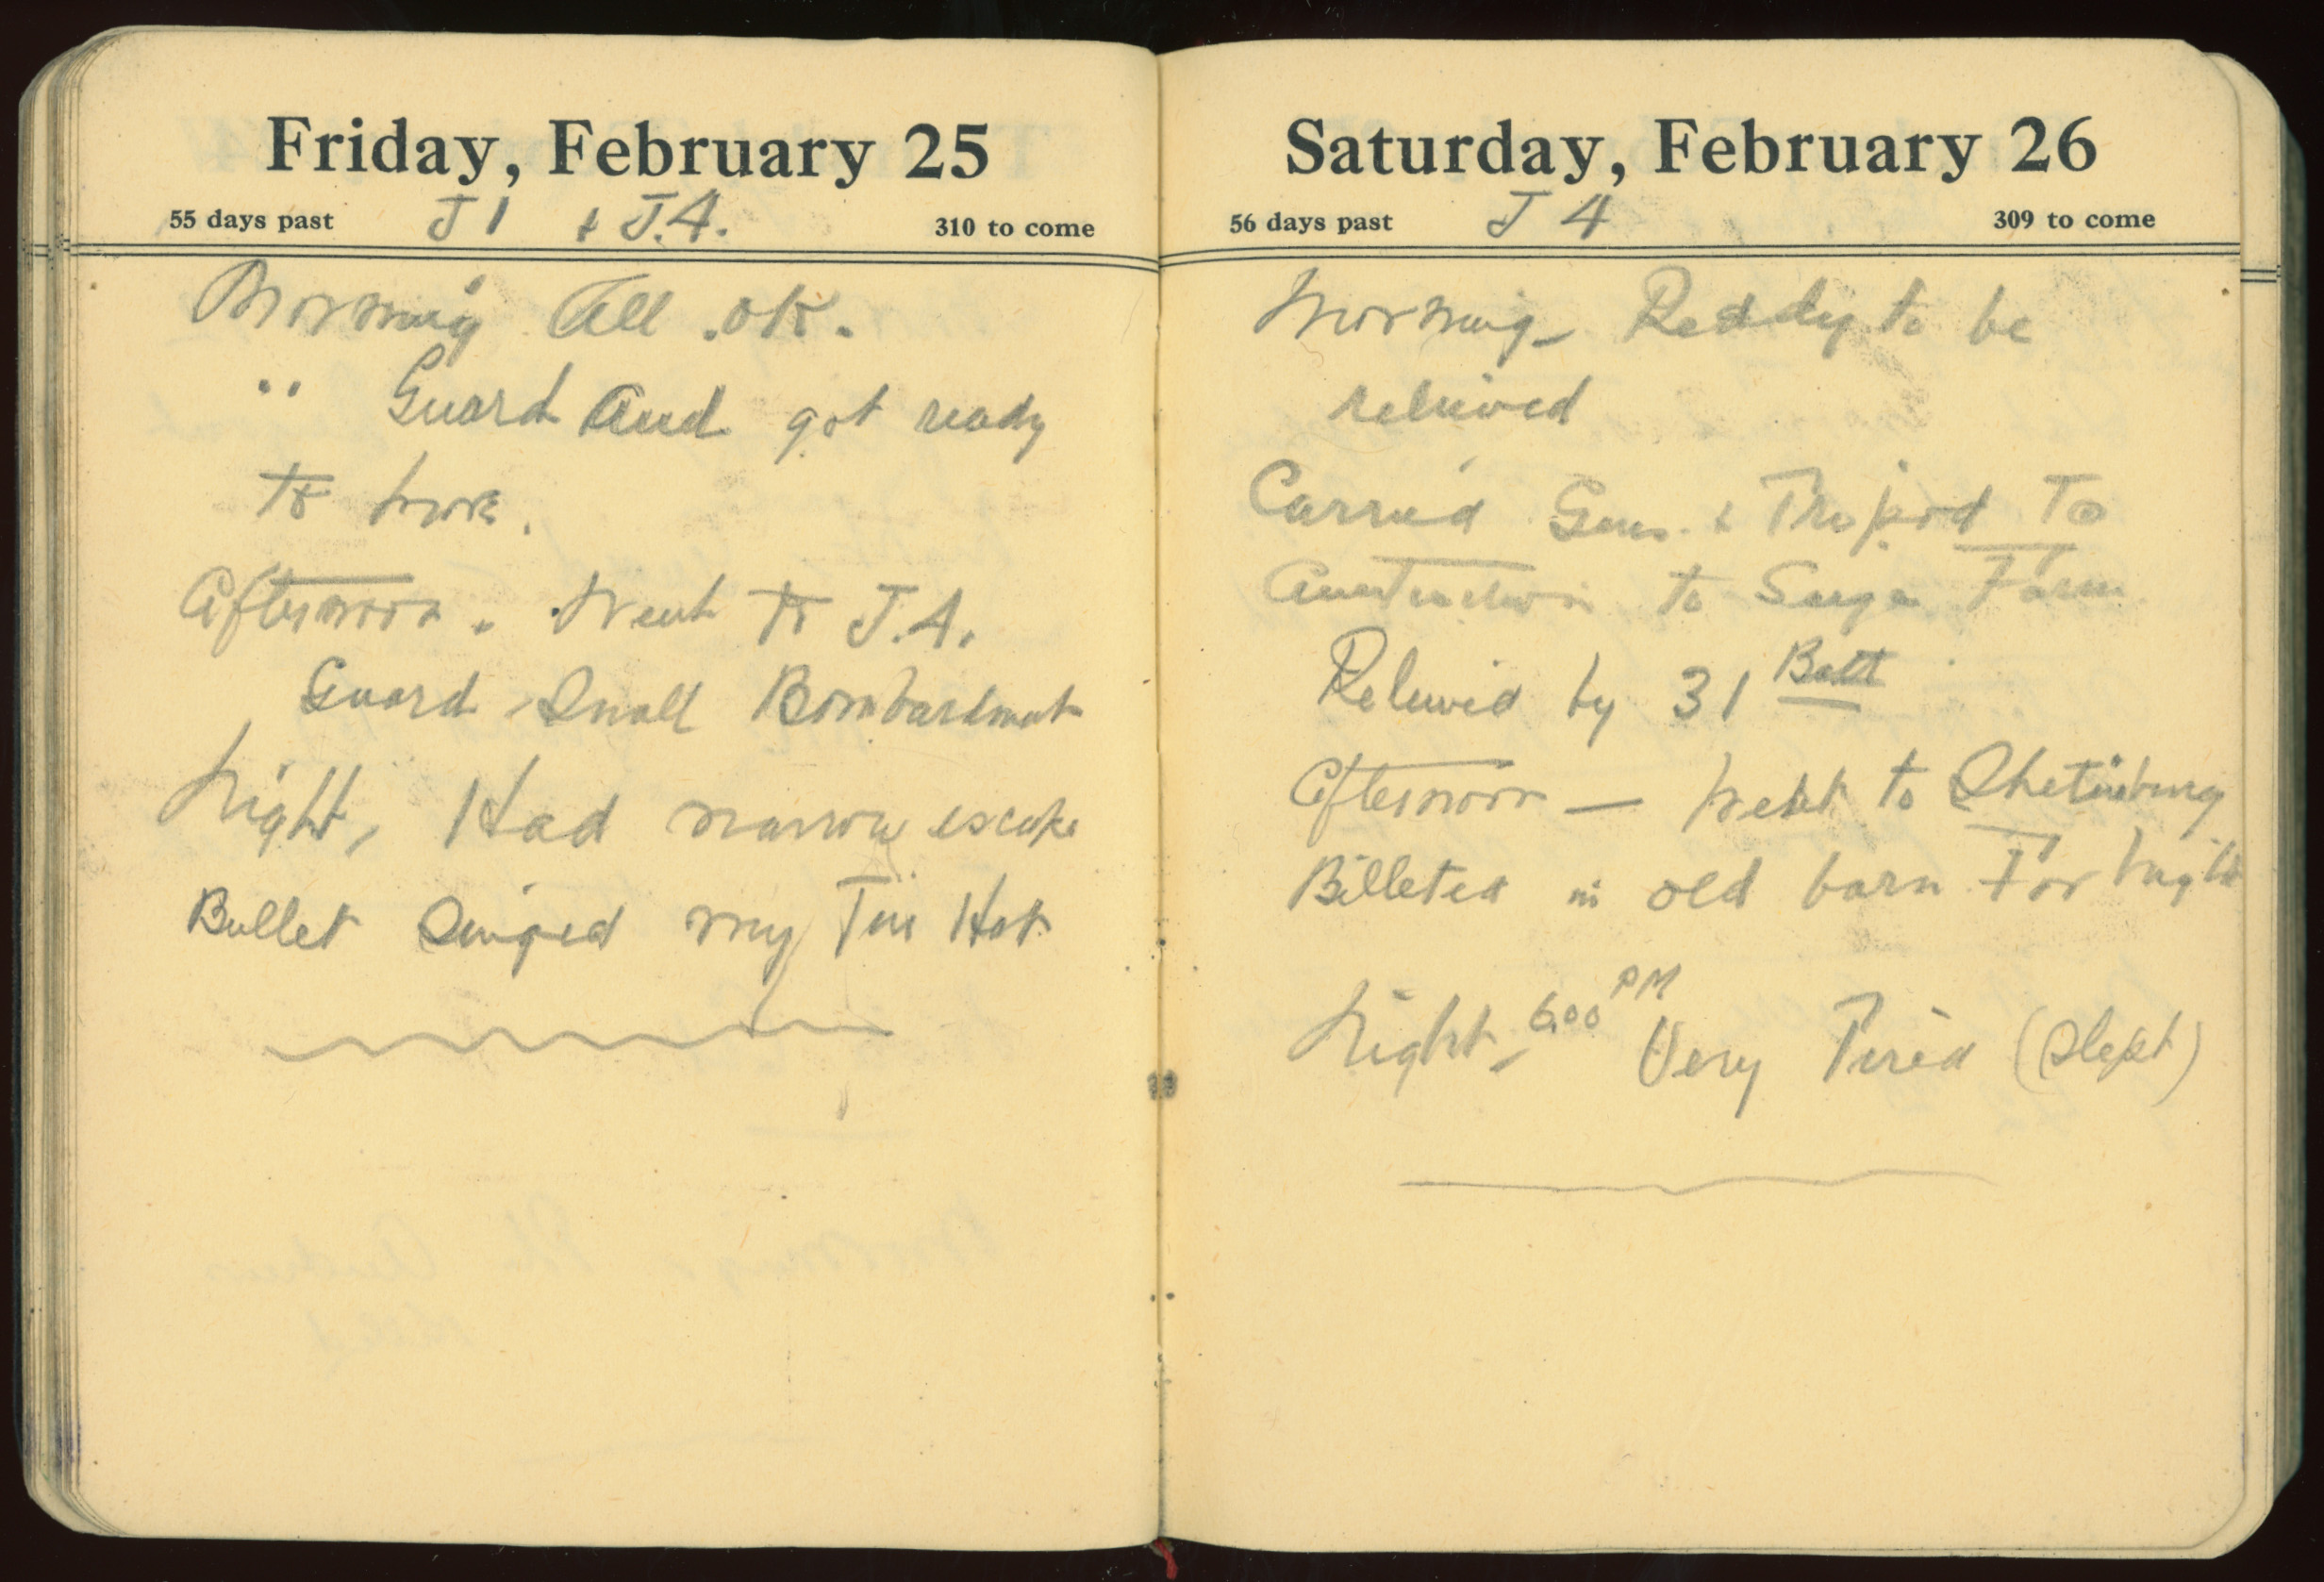 Friday, February 25
55 days past J 1 & J.4. 310 to come
Morning All .OK.
" Guard And got ready
to move.
Afternoon. Went to J.4.
Guard, Small Bombardment
Night, Had narrow escape
Bullet Singed my Tin Hat
Saturday, February 26
56 days past J 4 309 to come
Morning - Reddy to be
relieved
Carried Guns & Tripod To
to Farm
Relieved by 31 Batt
Afternoon — Went to
Billeted in old barn For Night
Night, 6.00 PM Very Tired (Slept)